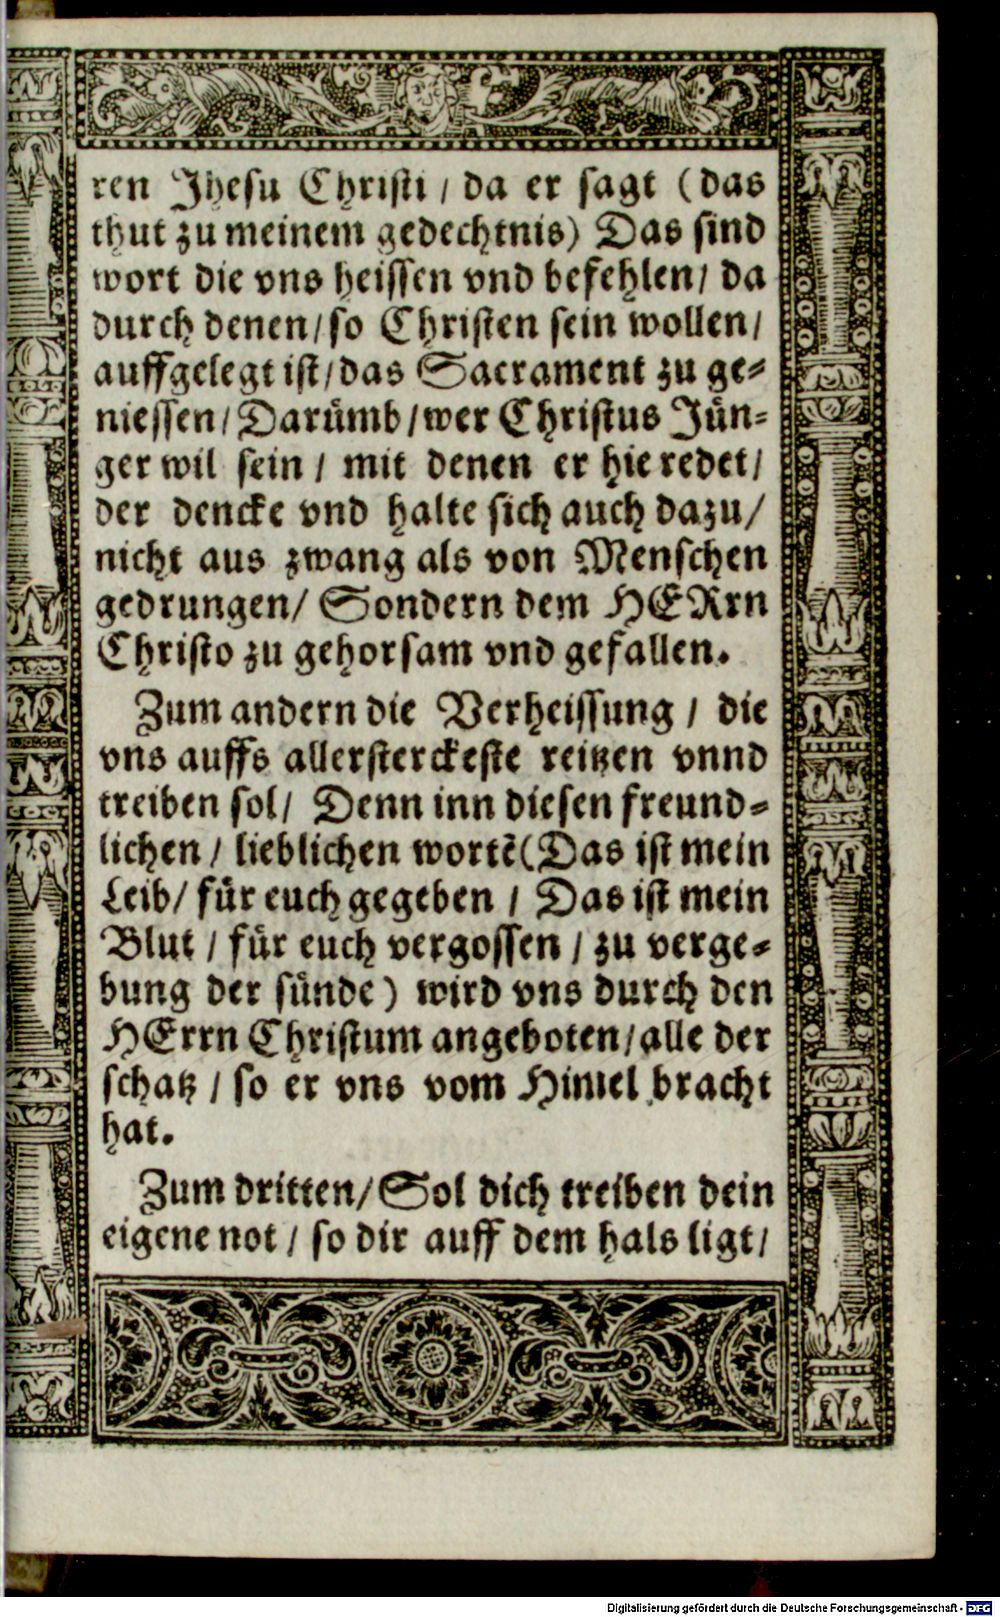 ren Jhesu Christi / da er sagt (das
thut zu meinem gedechtnis) Das sind
wort die vns heissen vnd befehlen / da
durch denen / so Christen sein wollen /
auffgelegt ist / das Sacrament zu ge-
niessen / Darümb / wer Christus Jün-
ger wil sein / mit denen er hie redet /
der dencke vnd halte sich auch dazu /
nicht aus zwang als von Menschen
gedrungen / Sondern dem HERrn
Christo zu gehorsam vnd gefallen.
Zum andern die Verheissung / die
vns auffs allersterckeste reitzen vnnd
treiben sol / Denn inn diesen freund-
lichen / lieblichen wortẽ (Das ist mein
Leib / für euch gegeben / Das ist mein
Blut / für euch vergossen / zu verge-
bung der sünde) wird vns durch den
HErrn Christum angeboten / alle der
schatz / so er vns vom Himel bracht
hat.
Zum dritten / Sol dich treiben dein
eigene not / so dir auff dem hals ligt /
Digitalisierung gefördert durch die Deutsche Forschungsgemeinschaft - DFG